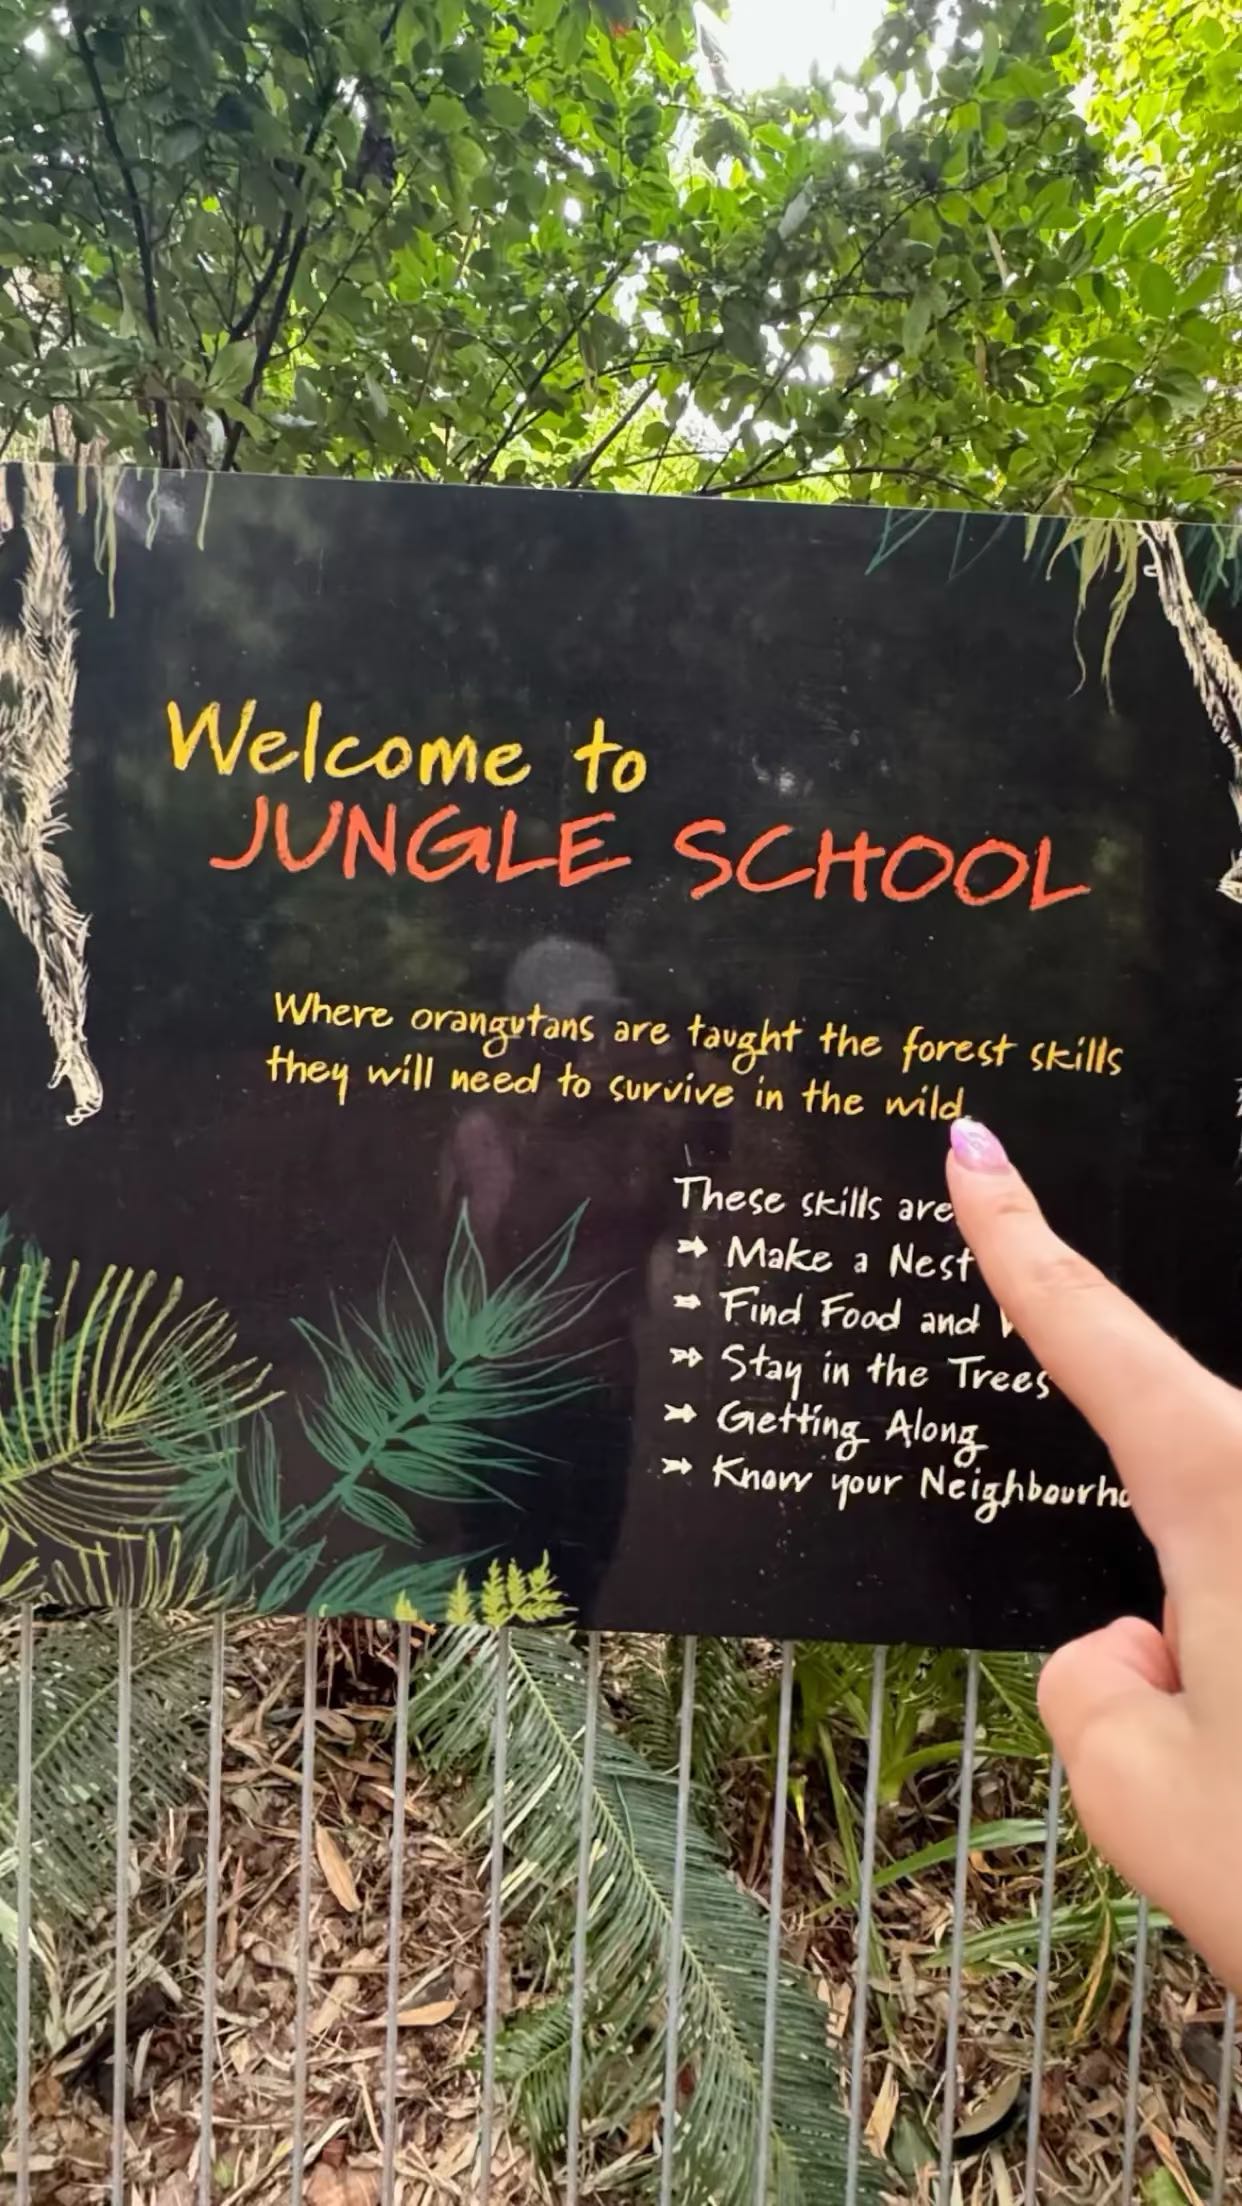 Welcome to
JUNGLE SCHOOL
Where orangutans are taught the forest skills
they will need to survive in the wild.
These skills are
Make a Nest
Find Food and
Stay in the Trees
Getting Along
Know your